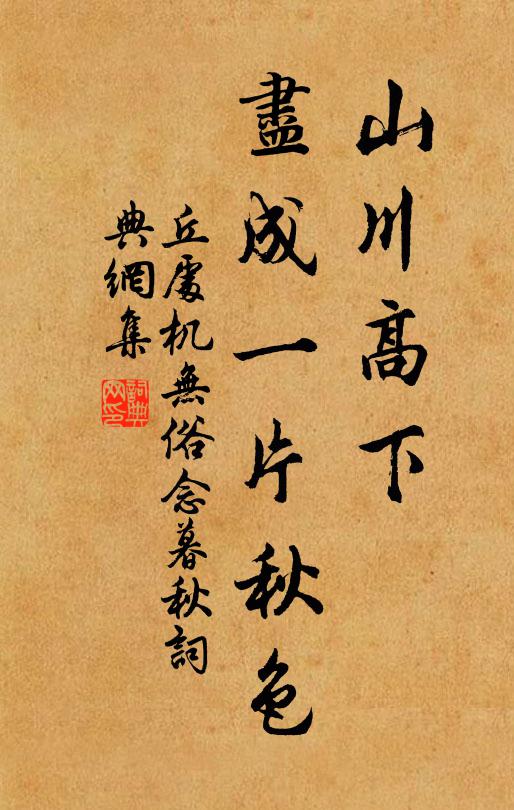 山川高下
盡成一片秋色
丘處机無俗念暮秋詞
典網集
詞典网印